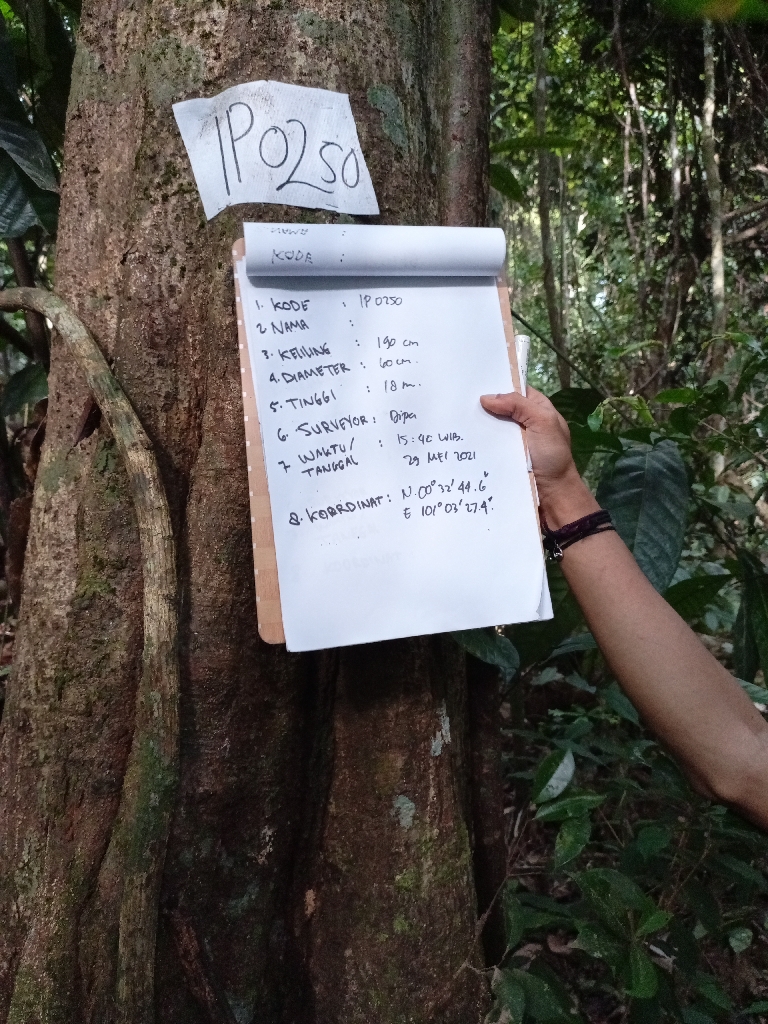 IP0250
KODE :
1. KODE : IP0250
2 NAMA :
3. KELILING : 190 cm
4. DIAMETER : 60 cm.
5. TINGGI : 18 m.
6. SURVEYOR : Dipa
7 WAKTU/ : 15:40 WIB.
TANGGAL 29 MEI 2021
8. KOORDINAT : N.00° 32' 44.6"
E 101° 03' 27.4".